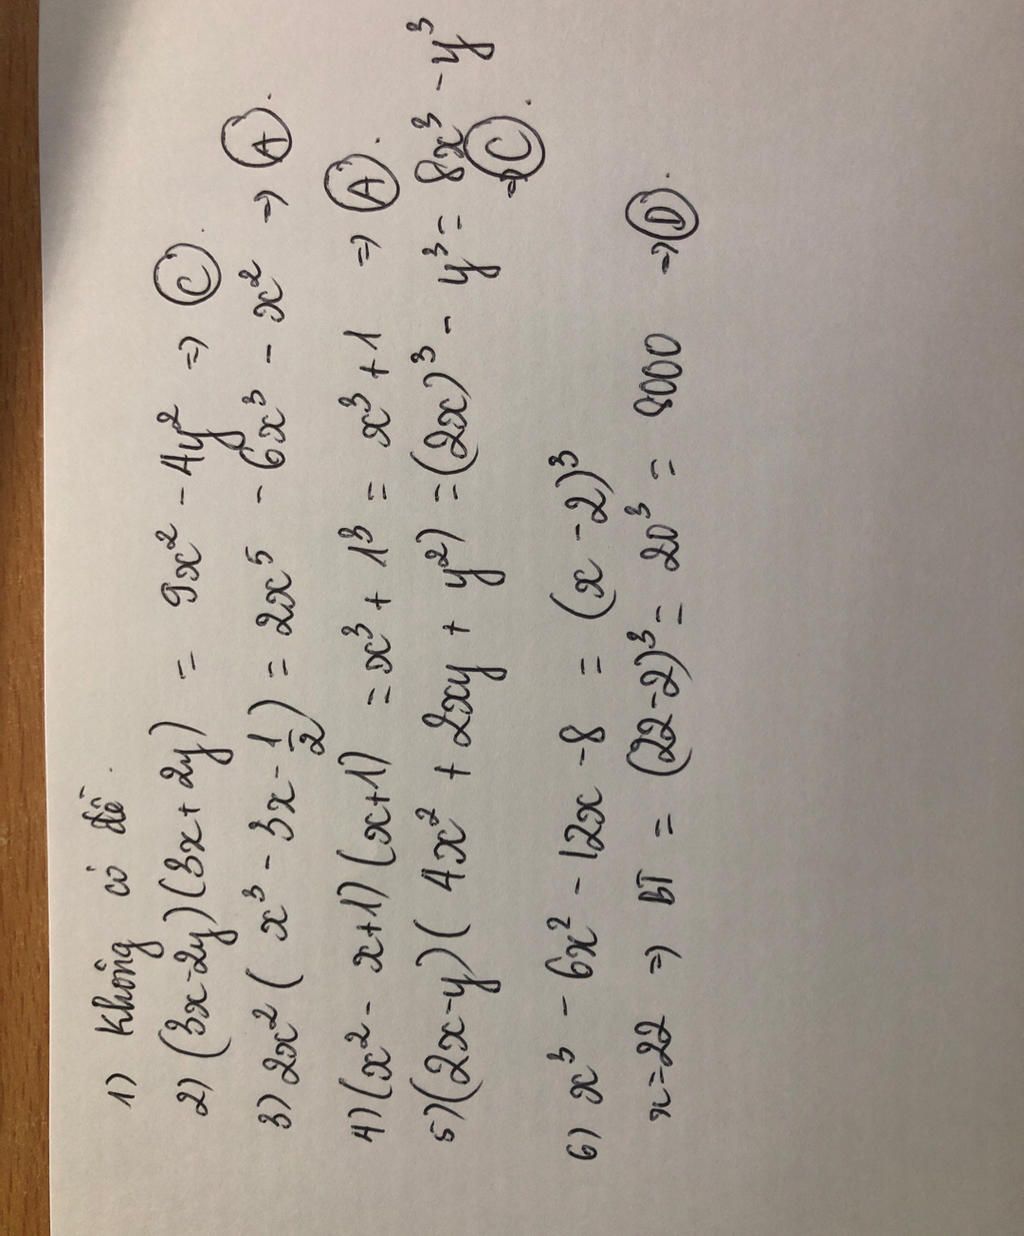 1) Không có đề.
2) (3x-2y)(3x+2y) = 9x² - 4y² => C.
3) 2x² (x³ - 3x - 1/2) = 2x⁵ - 6x³ - x² => A.
4) (x² - x+1) (x+1) = x³ + 1³ = x³ + 1 => A.
5) (2x-y) (4x² + 2xy + y²) = (2x)³ - y³ = 8x³ - y³
=> C.
6) x³ - 6x² - 12x - 8 = (x - 2)³
x=22 => BT = (22-2)³ = 20³ = 8000 => D.